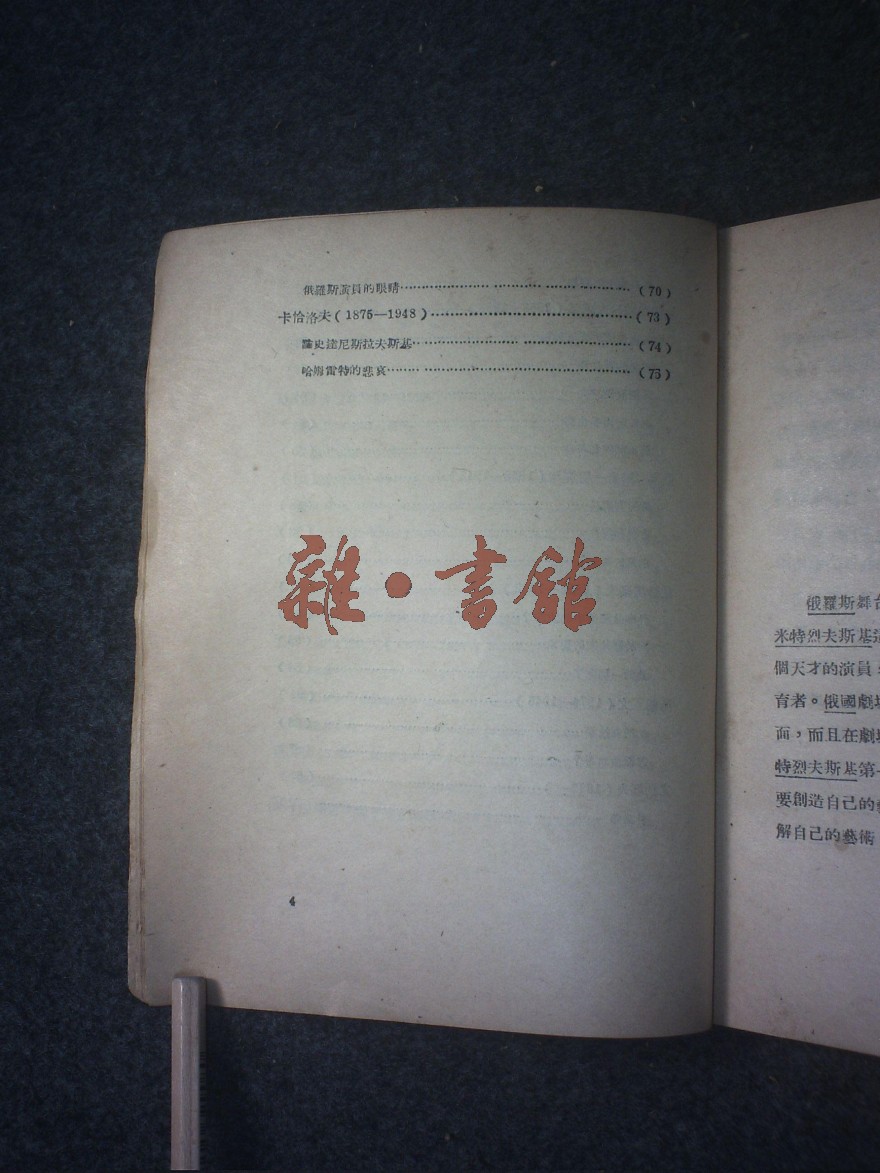 俄羅斯演員的眼睛……………………………………(70)
卡恰洛夫(1875—1948)……………………………(73)
論史達尼斯拉夫斯基…………………………………(74)
哈姆雷特的悲哀………………………………………(75)
雜·書館
4
俄羅斯舞台
米特烈夫斯基這
個天才的演員,
育者。俄國劇場
面,而且在劇場
特烈夫斯基第一
要創造自己的
解自己的藝術,